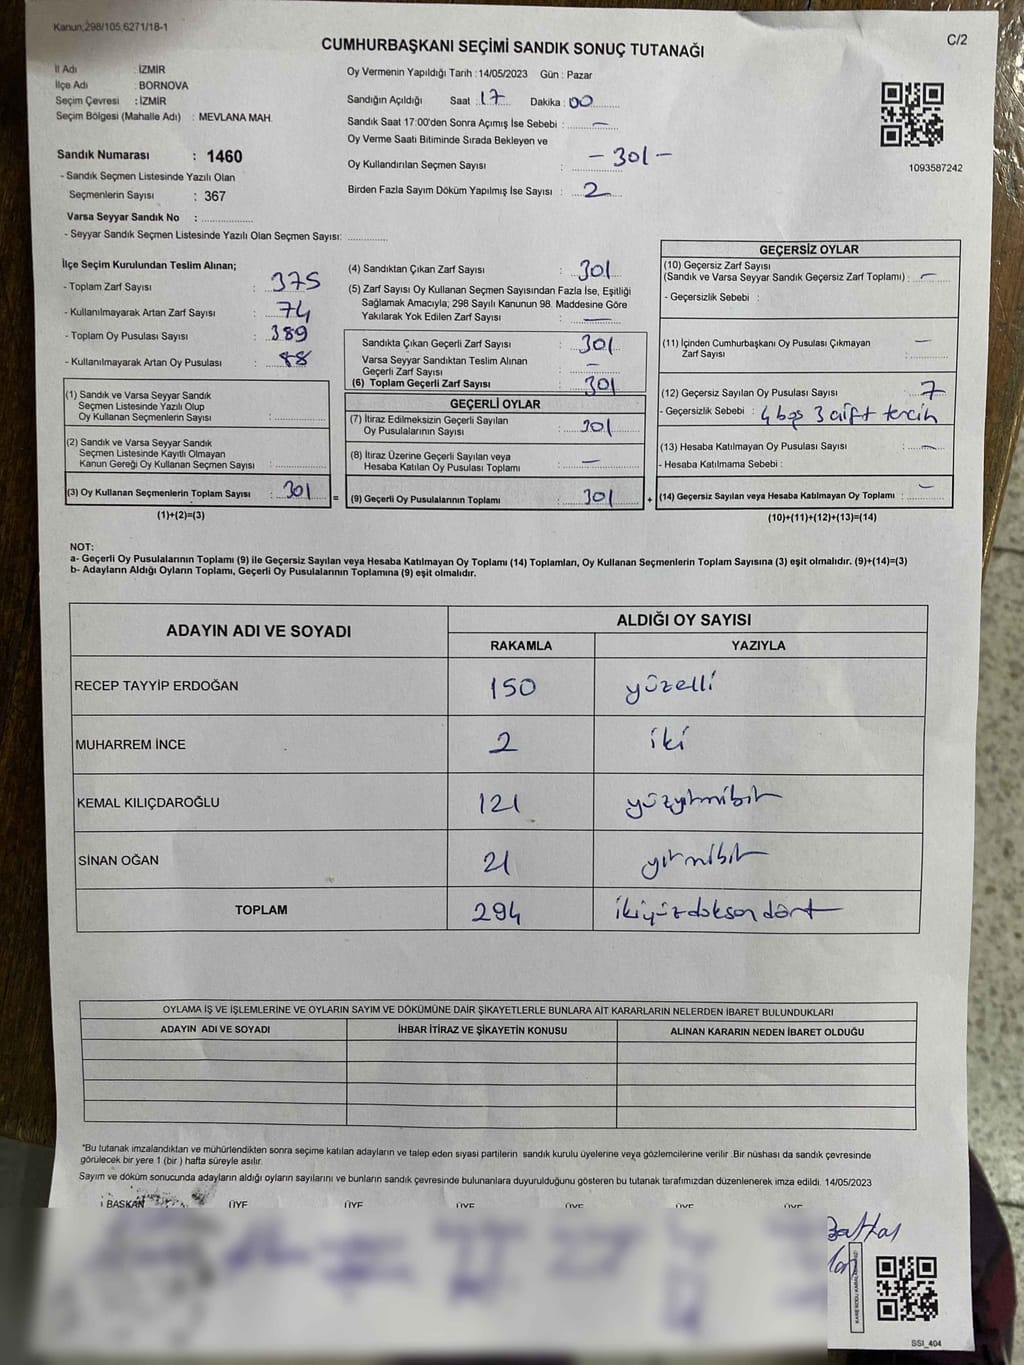 Kanun;298/105,6271/18-1
C/2
CUMHURBAŞKANI SEÇİMİ SANDIK SONUÇ TUTANAĞI
İl Adı : İZMİR
İlçe Adı : BORNOVA
Seçim Çevresi : İZMİR
Seçim Bölgesi (Mahalle Adı) : MEVLANA MAH.
Sandık Numarası : 1460
- Sandık Seçmen Listesinde Yazılı Olan
Seçmenlerin Sayısı : 367
Varsa Seyyar Sandık No :
- Seyyar Sandık Seçmen Listesinde Yazılı Olan Seçmen Sayısı:
Oy Vermenin Yapıldığı Tarih : 14/05/2023 Gün : Pazar
Sandığın Açıldığı Saat : 17 Dakika : 00
Sandık Saat 17:00'den Sonra Açımış İse Sebebi : —
Oy Verme Saati Bitiminde Sırada Bekleyen ve
Oy Kullandırılan Seçmen Sayısı : - 301 -
Birden Fazla Sayım Döküm Yapılmış İse Sayısı : 2
1093587242
İlçe Seçim Kurulundan Teslim Alınan;
- Toplam Zarf Sayısı : 375
- Kullanılmayarak Artan Zarf Sayısı : 74
- Toplam Oy Pusulası Sayısı : 389
- Kullanılmayarak Artan Oy Pusulası : 88
(1) Sandık ve Varsa Seyyar Sandık
Seçmen Listesinde Yazılı Olup
Oy Kullanan Seçmenlerin Sayısı :
(2) Sandık ve Varsa Seyyar Sandık
Seçmen Listesinde Kayıtlı Olmayan
Kanun Gereği Oy Kullanan Seçmen Sayısı :
(3) Oy Kullanan Seçmenlerin Toplam Sayısı : 301 =
(1)+(2)=(3)
(4) Sandıktan Çıkan Zarf Sayısı : 301
(5) Zarf Sayısı Oy Kullanan Seçmen Sayısından Fazla İse, Eşitliği
Sağlamak Amacıyla; 298 Sayılı Kanunun 98. Maddesine Göre
Yakılarak Yok Edilen Zarf Sayısı : —
Sandıkta Çıkan Geçerli Zarf Sayısı : 301
Varsa Seyyar Sandıktan Teslim Alınan
Geçerli Zarf Sayısı : -
(6) Toplam Geçerli Zarf Sayısı : 301
GEÇERLİ OYLAR
(7) İtiraz Edilmeksizin Geçerli Sayılan
Oy Pusulalarının Sayısı : 301
(8) İtiraz Üzerine Geçerli Sayılan veya
Hesaba Katılan Oy Pusulası Toplamı : —
(9) Geçerli Oy Pusulalarının Toplamı : 301 +
GEÇERSİZ OYLAR
(10) Geçersiz Zarf Sayısı
(Sandık ve Varsa Seyyar Sandık Geçersiz Zarf Toplamı) : —
- Geçersizlik Sebebi :
(11) İçinden Cumhurbaşkanı Oy Pusulası Çıkmayan
Zarf Sayısı : —
(12) Geçersiz Sayılan Oy Pusulası Sayısı : 7
- Geçersizlik Sebebi : 4 boş 3 çift tercih
(13) Hesaba Katılmayan Oy Pusulası Sayısı : —
- Hesaba Katılmama Sebebi :
(14) Geçersiz Sayılan veya Hesaba Katılmayan Oy Toplamı : —
(10)+(11)+(12)+(13)=(14)
NOT:
a- Geçerli Oy Pusulalarının Toplamı (9) ile Geçersiz Sayılan veya Hesaba Katılmayan Oy Toplamı (14) Toplamları, Oy Kullanan Seçmenlerin Toplam Sayısına (3) eşit olmalıdır. (9)+(14)=(3)
b- Adayların Aldığı Oyların Toplamı, Geçerli Oy Pusulalarının Toplamına (9) eşit olmalıdır.
ADAYIN ADI VE SOYADI
ALDIĞI OY SAYISI
RAKAMLA YAZIYLA
RECEP TAYYİP ERDOĞAN 150 yüzelli
MUHARREM İNCE 2 iki
KEMAL KILIÇDAROĞLU 121 yüzyirmibir
SİNAN OĞAN 21 yirmibir
TOPLAM 294 ikiyüzdoksandört
OYLAMA İŞ VE İŞLEMLERİNE VE OYLARIN SAYIM VE DÖKÜMÜNE DAİR ŞİKAYETLERLE BUNLARA AİT KARARLARIN NELERDEN İBARET BULUNDUKLARI
ADAYIN ADI VE SOYADI İHBAR İTİRAZ VE ŞİKAYETİN KONUSU ALINAN KARARIN NEDEN İBARET OLDUĞU
*Bu tutanak imzalandıktan ve mühürlendikten sonra seçime katılan adayların ve talep eden siyasi partilerin sandık kurulu üyelerine veya gözlemcilerine verilir .Bir nüshası da sandık çevresinde
görülecek bir yere 1 (bir ) hafta süreyle asılır.
Sayım ve döküm sonucunda adayların aldığı oyların sayılarını ve bunların sandık çevresinde bulunanlara duyurulduğunu gösteren bu tutanak tarafımızdan düzenlenerek imza edildi. 14/05/2023
BAŞKAN ÜYE ÜYE ÜYE ÜYE ÜYE ÜYE
SSI_404